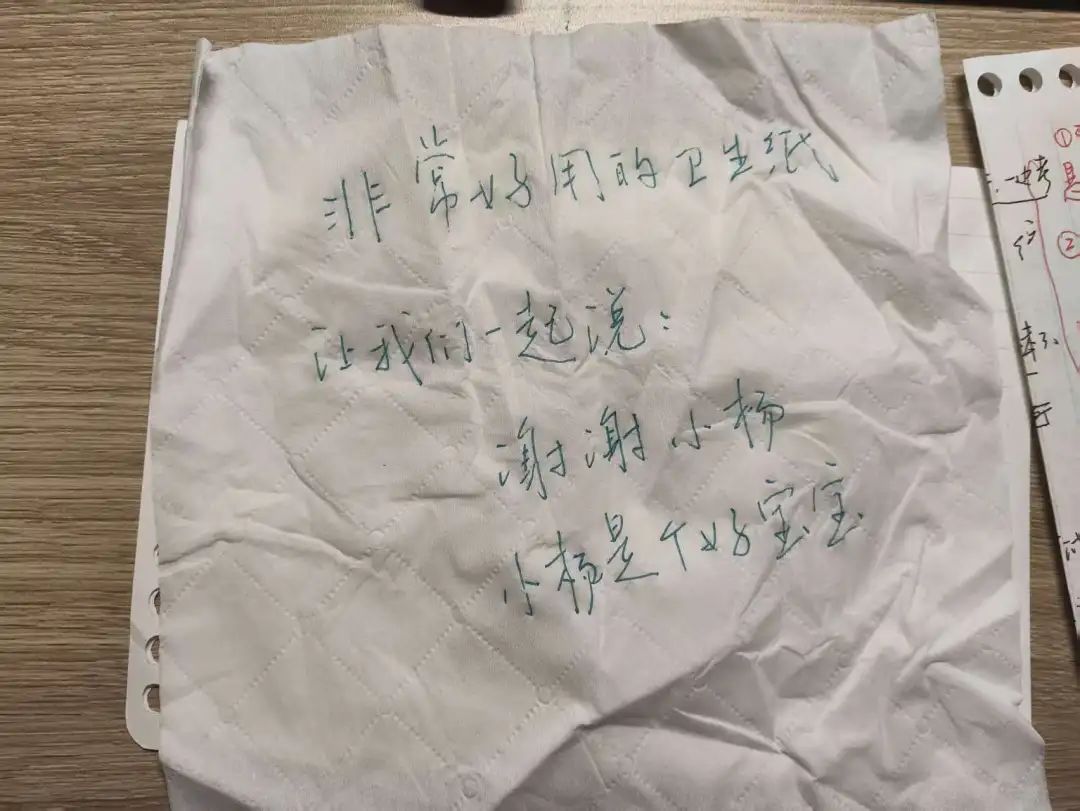 非常好用的卫生纸
让我们一起说:
谢谢小杨
小杨是个好宝宝
①
是
②